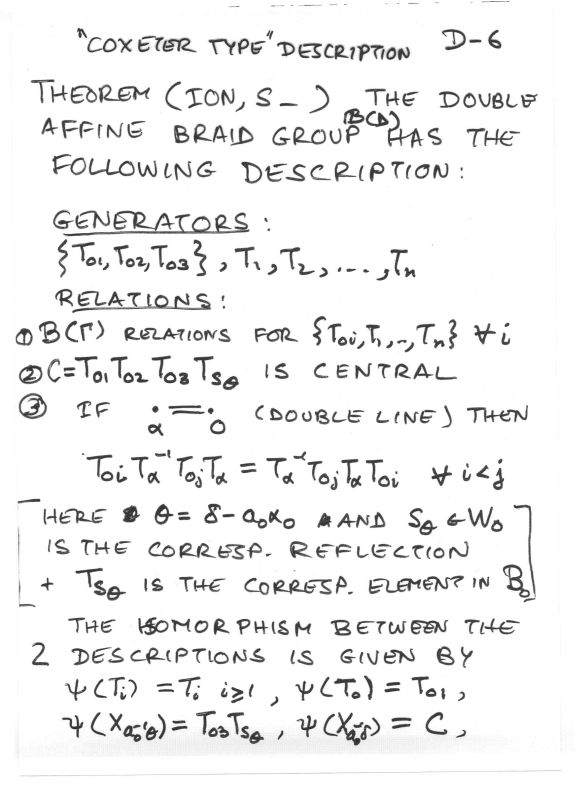 "COXETER TYPE" DESCRIPTION D-6
THEOREM (ION, S_) THE DOUBLE
AFFINE BRAID GROUP B(Δ) HAS THE
FOLLOWING DESCRIPTION:
GENERATORS:
{T₀₁, T₀₂, T₀₃}, T₁, T₂, ..., Tₙ
RELATIONS:
① B(Γ) RELATIONS FOR {T₀ᵢ, T₁, .., Tₙ} ∀ i
② C = T₀₁ T₀₂ T₀₃ T_{S_θ} IS CENTRAL
③ IF α = 0 (DOUBLE LINE) THEN
T₀ᵢ T_α⁻¹ T₀ⱼ T_α = T_α⁻¹ T₀ⱼ T_α T₀ᵢ ∀ i<j
[HERE θ = δ - a₀α₀ AND S_θ ∈ W₀
IS THE CORRESP. REFLECTION
+ T_{S_θ} IS THE CORRESP. ELEMENT IN B₀]
THE ISOMORPHISM BETWEEN THE
2 DESCRIPTIONS IS GIVEN BY
ψ(Tᵢ) = Tᵢ i≥1, ψ(T₀) = T₀₁,
ψ(X_{a₀⁻¹θ}) = T₀₃ T_{S_θ}, ψ(X_{a₀⁻¹δ}) = C,